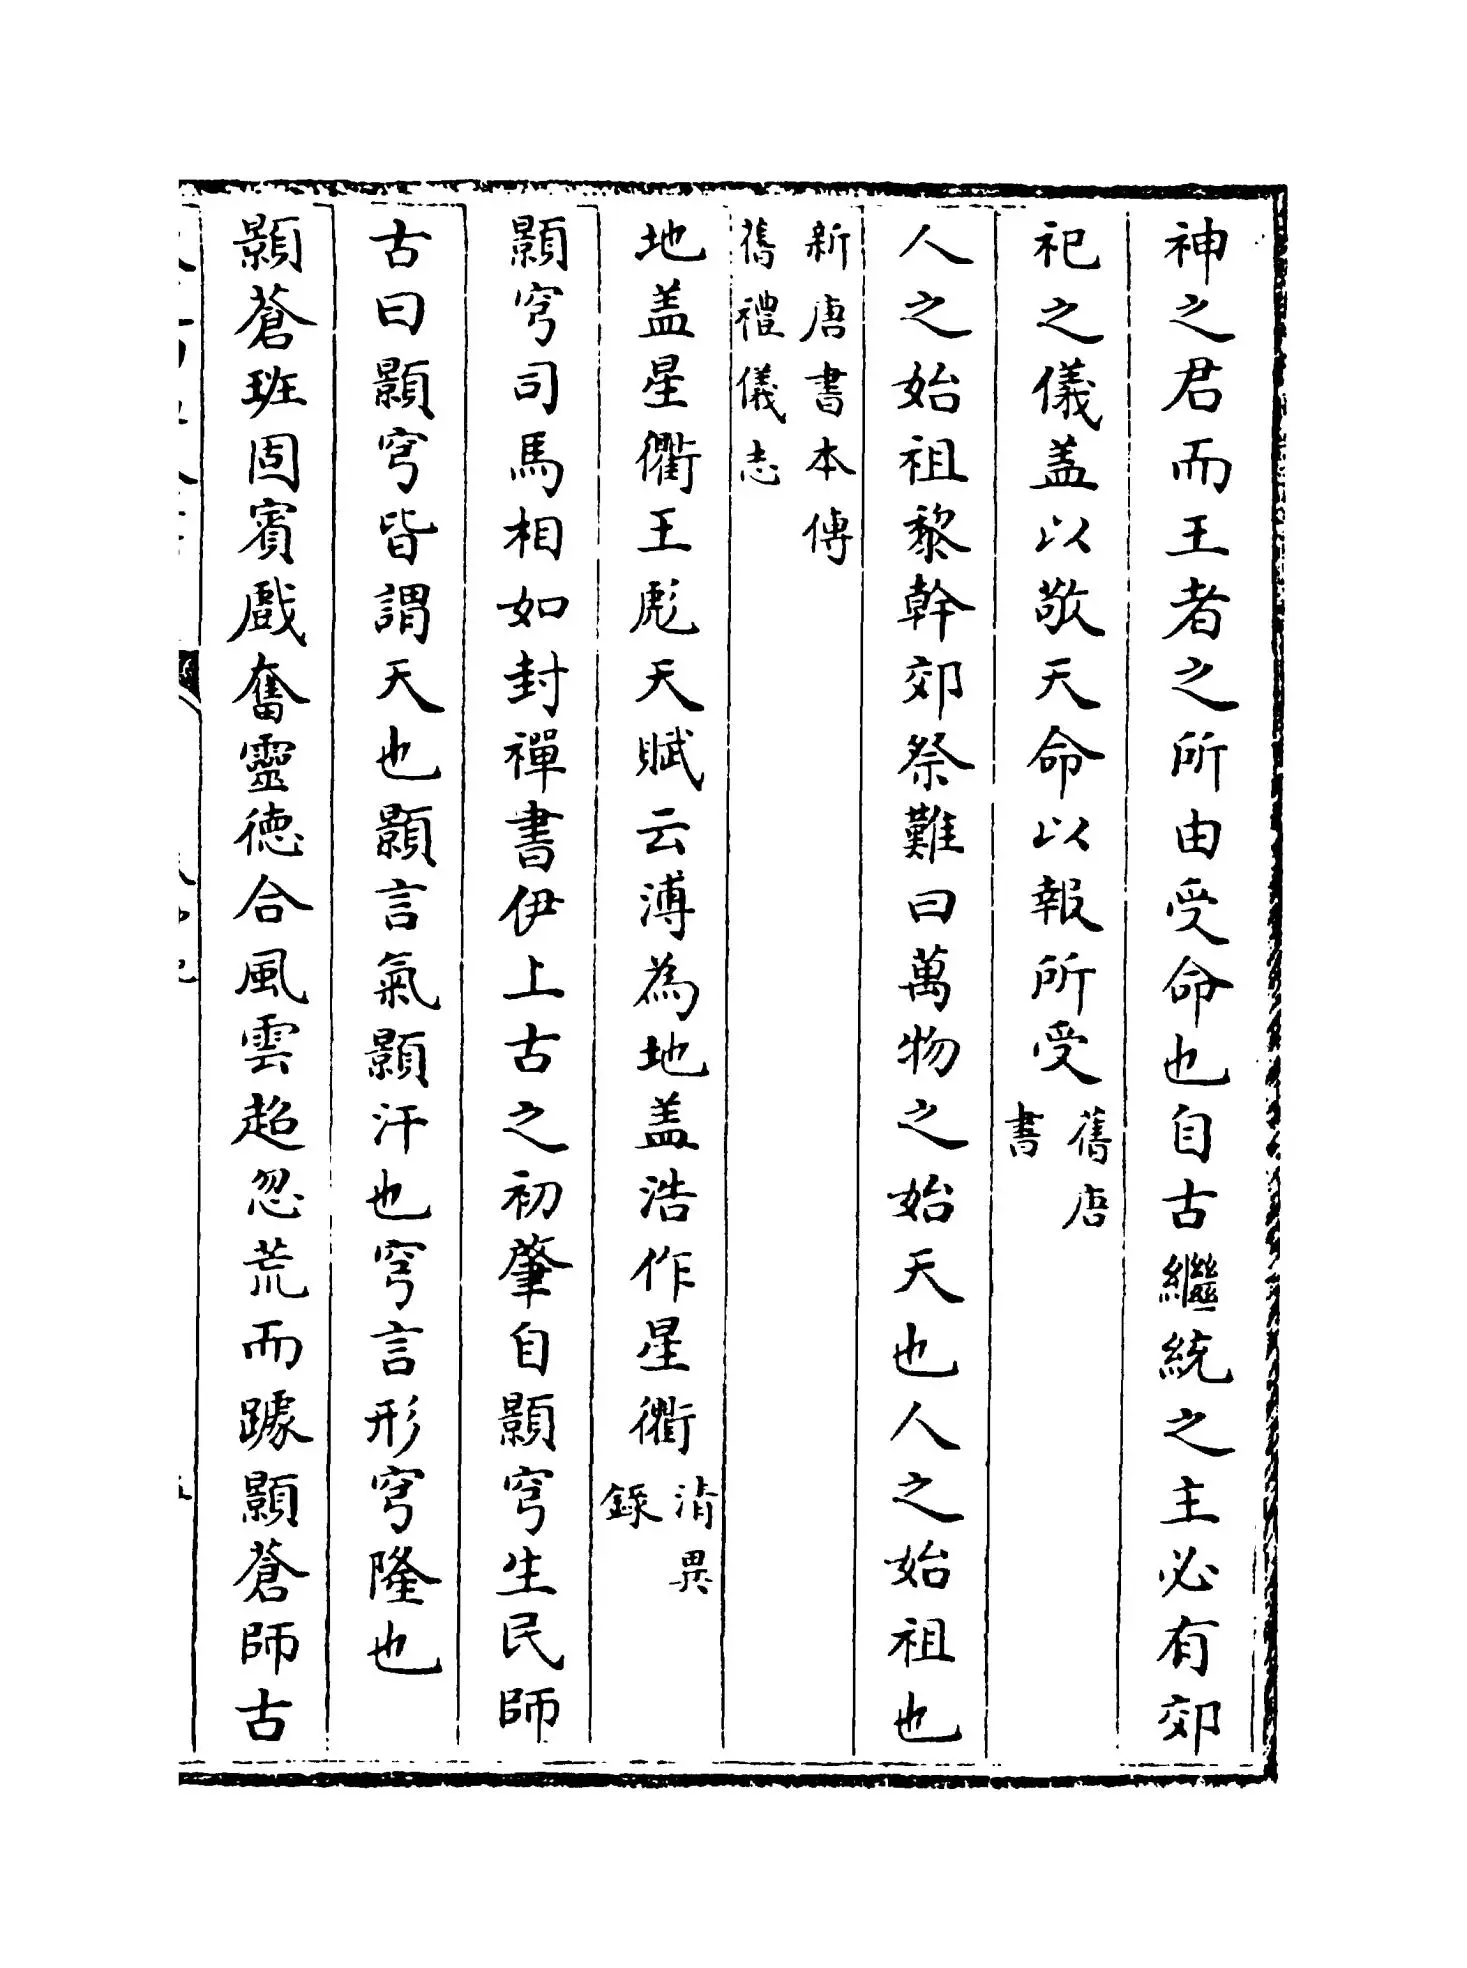 神之君而王者之所由受命也自古繼統之主必有郊
祀之儀盖以敬天命以報所受舊唐書
人之始祖黎幹郊祭難曰萬物之始天也人之始祖也
新唐書本傳
舊禮儀志
地盖星衢王彪天賦云溥為地盖浩作星衢清異錄
顥穹司馬相如封禪書伊上古之初肇自顥穹生民師
古曰顥穹皆謂天也顥言氣顥汗也穹言形穹隆也
顥蒼班固賓戲奮靈徳合風雲超忽荒而躆顥蒼師古